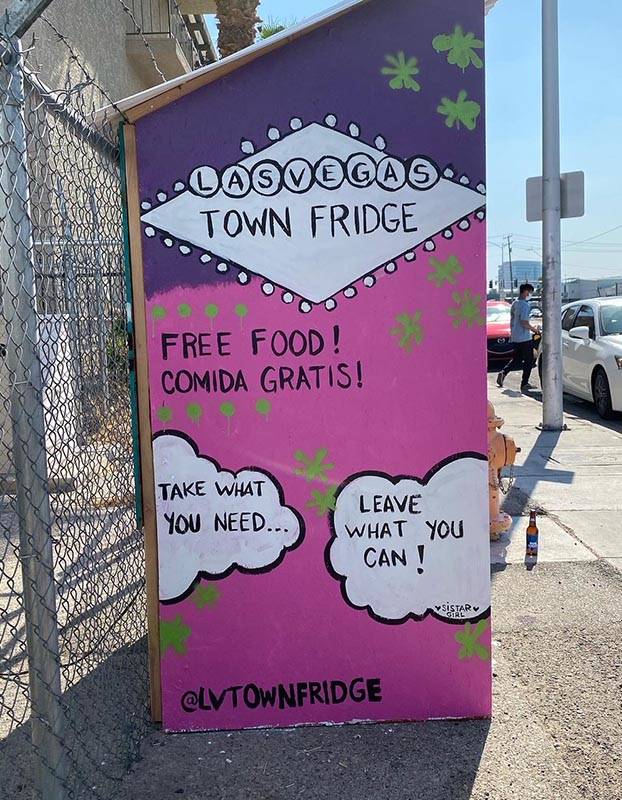 LASVEGAS
TOWN FRIDGE
FREE FOOD!
COMIDA GRATIS!
TAKE WHAT
YOU NEED...
LEAVE
WHAT YOU
CAN!
♥SISTAR♥
GIRL
@LVTOWNFRIDGE